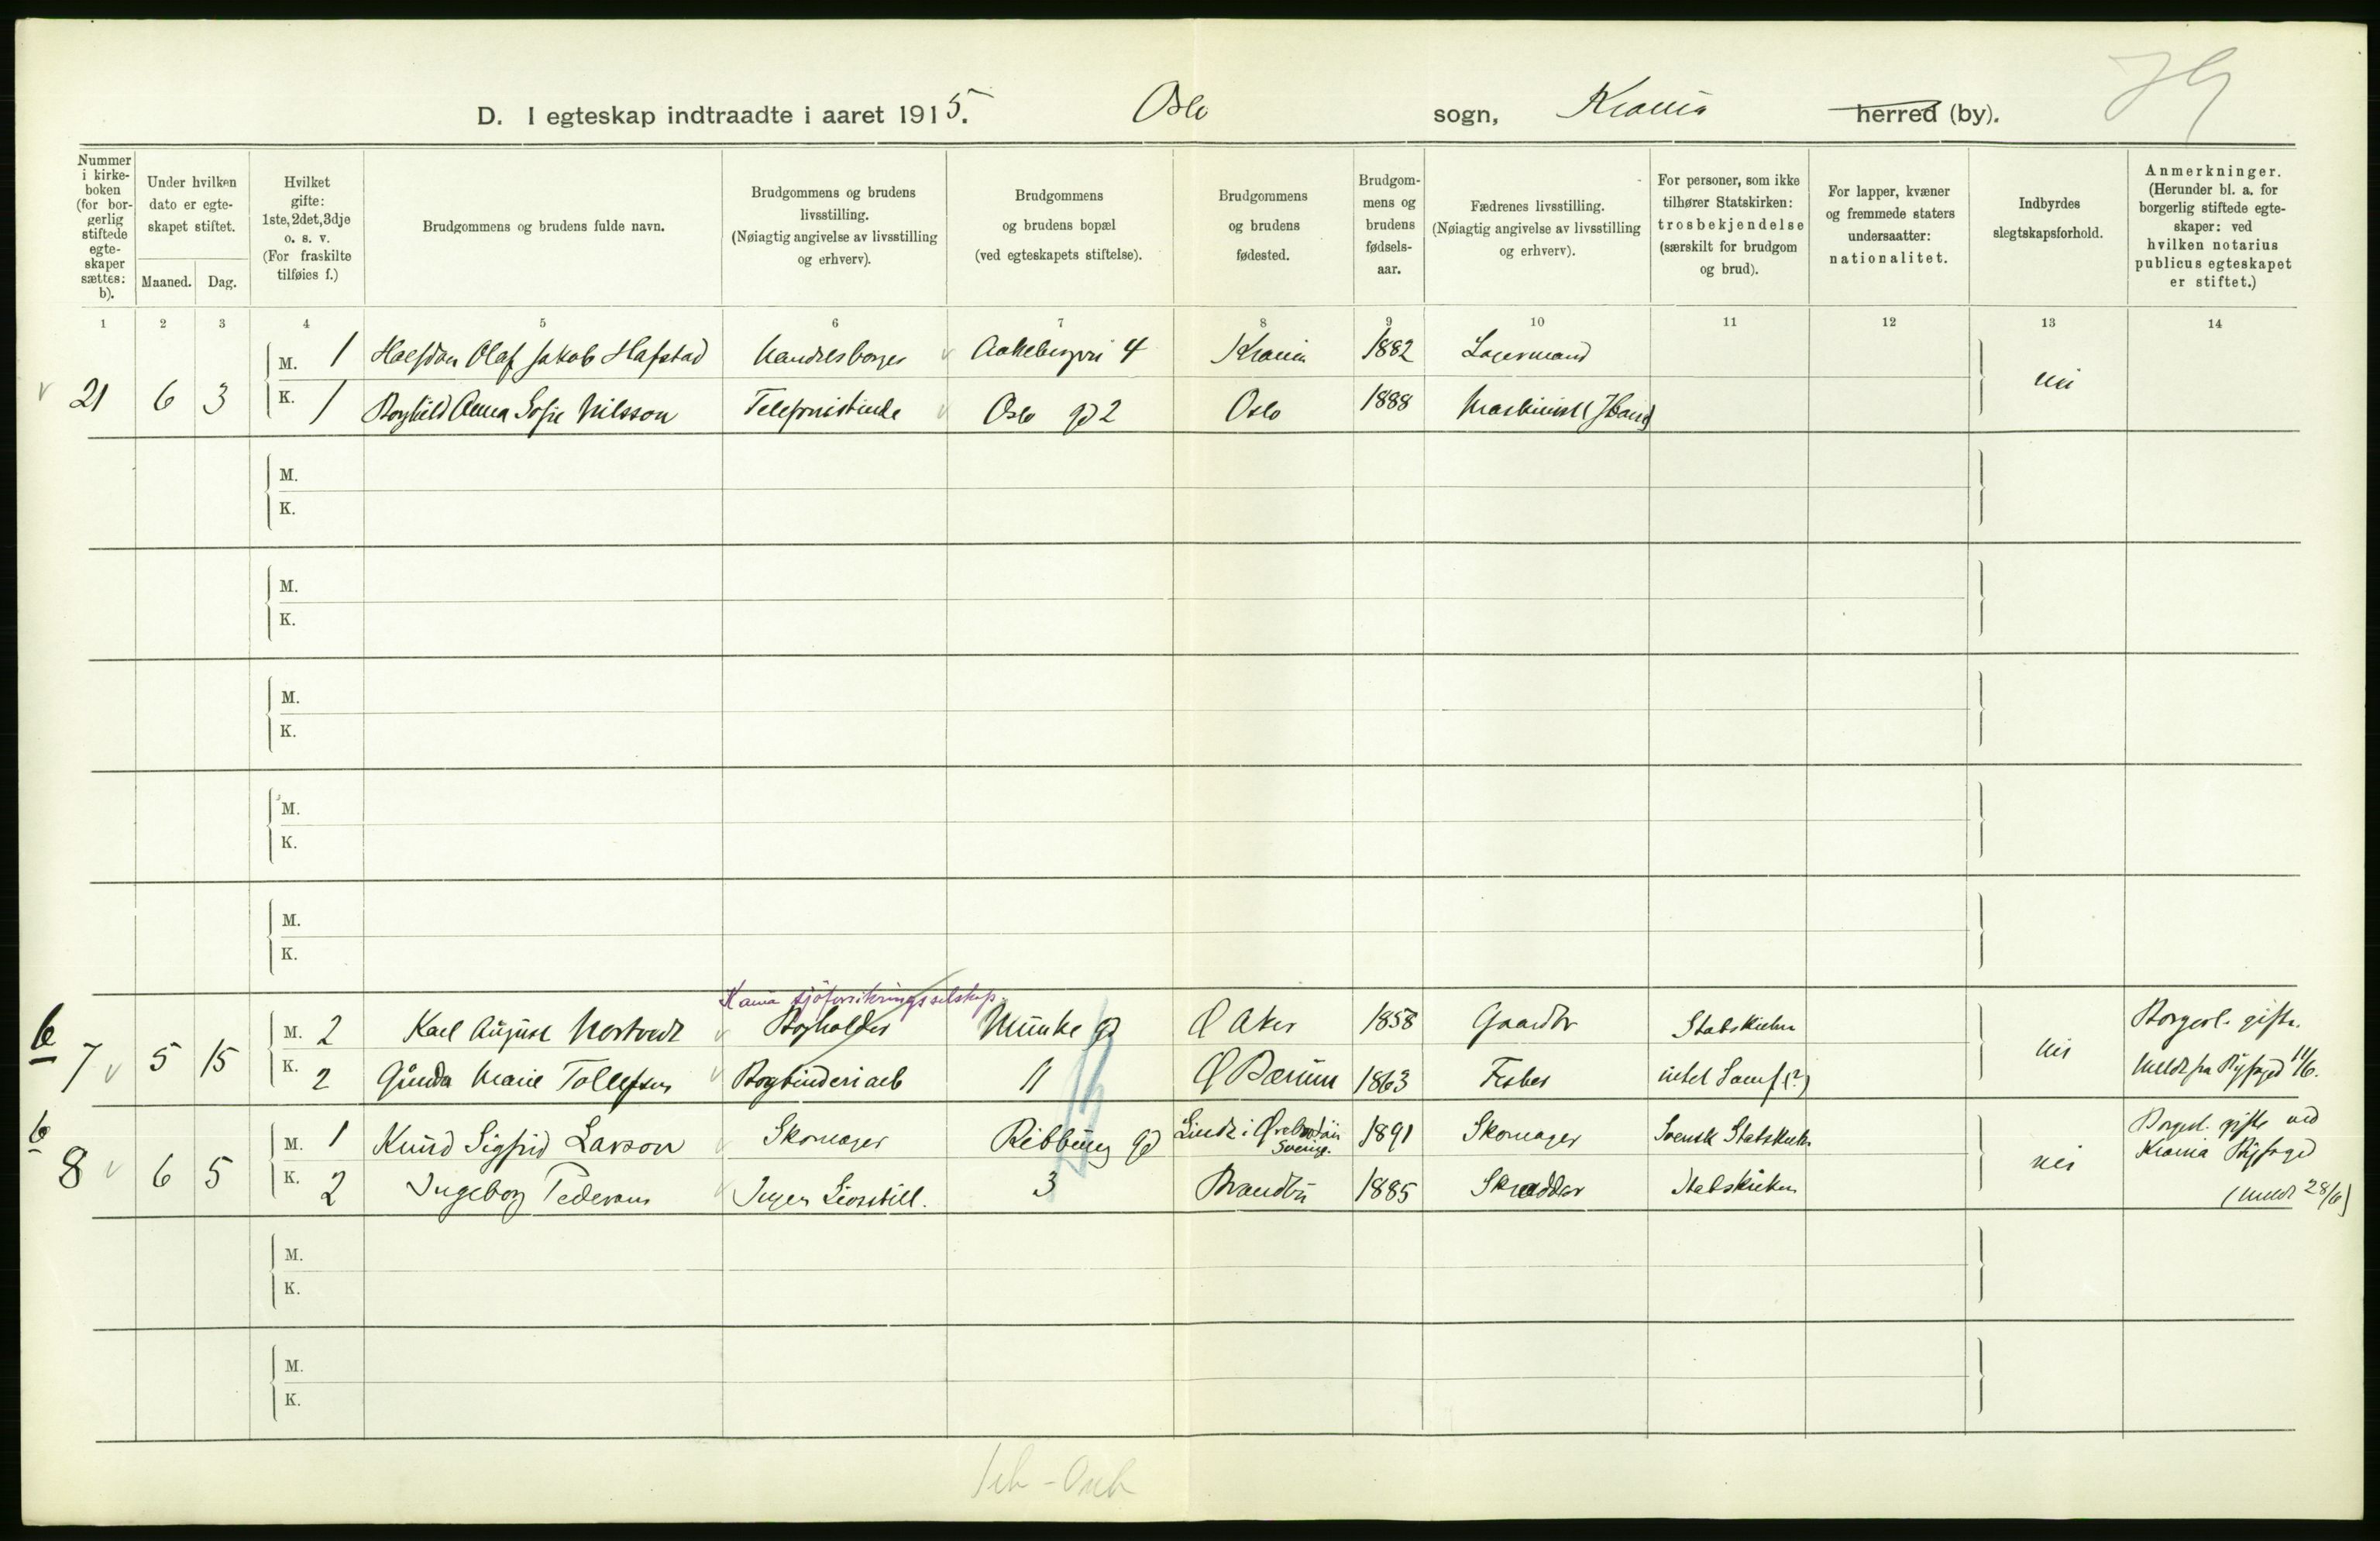 D. I egteskap indtraadte i aaret 1915. Oslo sogn, Krania herred (by).
Nummer i kirke-boken (for bor-gerlig stiftede egte-skaper sættes: b).
Under hvilken dato er egte-skapet stiftet.
Maaned. Dag.
Hvilket gifte: 1ste, 2det, 3dje o. s. v. (For fraskilte tilføies f.)
Brudgommens og brudens fulde navn.
Brudgommens og brudens livsstilling. (Nøiagtig angivelse av livsstilling og erhverv).
Brudgommens og brudens bopæl (ved egteskapets stiftelse).
Brudgommens og brudens fødested.
Brudgom-mens og brudens fødsels-aar.
Fædrenes livsstilling. (Nøiagtig angivelse av livsstilling og erhverv).
For personer, som ikke tilhører Statskirken: trosbekjendelse (særskilt for brudgom og brud).
For lapper, kvæner og fremmede staters undersaatter: nationalitet.
Indbyrdes slegtskapsforhold.
Anmerkninger. (Herunder bl. a. for borgerlig stiftede egte-skaper: ved hvilken notarius publicus egteskapet er stiftet.)
1 2 3 4 5 6 7 8 9 10 11 12 13 14
M. 1 Halfdan Olaf Jakob Hafstad Akebergvei 4 Krania 1882 Lagermand
21 6 3 nei
K. 1 Borghild Anna Sofie Nilsson Telefonistinde Oslo gd 2 Oslo 1888 Maskinist
M.
K.
M.
K.
M.
K.
M.
K.
M.
K.
Krania sjøforsikringsselskap.
b M. 2 Karl August Nortvedt Bogholder Munke gd Ø Aker 1858 Gaardbr Statskirken Borgerl. gifte.
7 5 15 nei
K. 2 Gunda Marie Tollefsen Bogbinderiarb 11 Ø Bærum 1863 Fisker intet Samf (?) Meldt fra Byfoged 11/6.
b M. 1 Knud Sigfrid Larson Skomager Ribbung gd Linde i Sverige. 1891 Skomager Svensk Statskirke Borgerl. gifte ved
8 6 5 nei Krania Byfoged
K. 2 Ingeborg Pedersen Ingen Livsstill. 3 Brandbu 1885 Skrædder Statskirken (meldt 28/6)
M.
K.
M.
K.